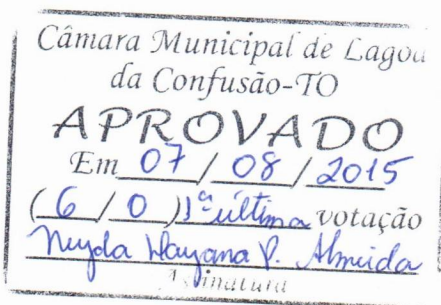 Câmara Municipal de Lagoa
da Confusão-TO
APROVADO
Em 07 / 08 / 2015
( 6 / 0 ) 1ª última votação
Dayana P. Almeida
Assinatura